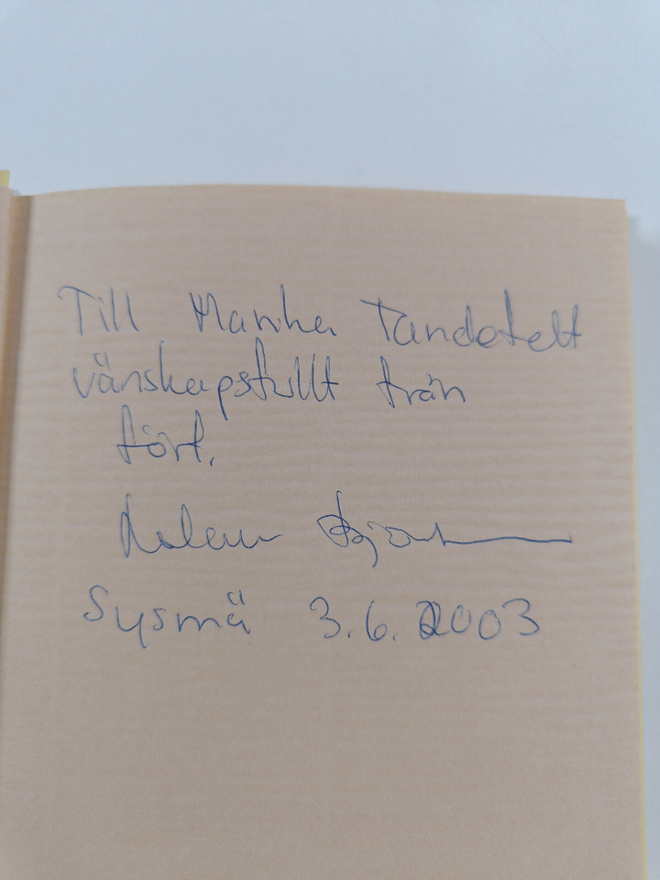 Till Marvha Tandefelt
vänskapsfullt från
förf.
Sysmä 3.6.2003